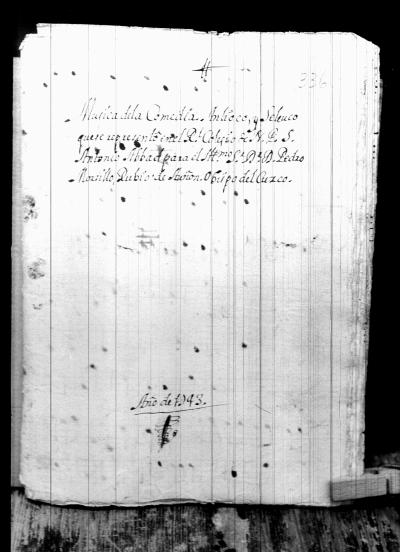 336
Musica dela Comedia Antioco, y Seleuco
que se representò en el Rl. Colegio de N. P. S.
Antonio Abbad para el Illmo. Sr. Dr. D. Pedro
Morsillo, Rubio de Auñon. Obispo del Cuzco.
Año de 1743.